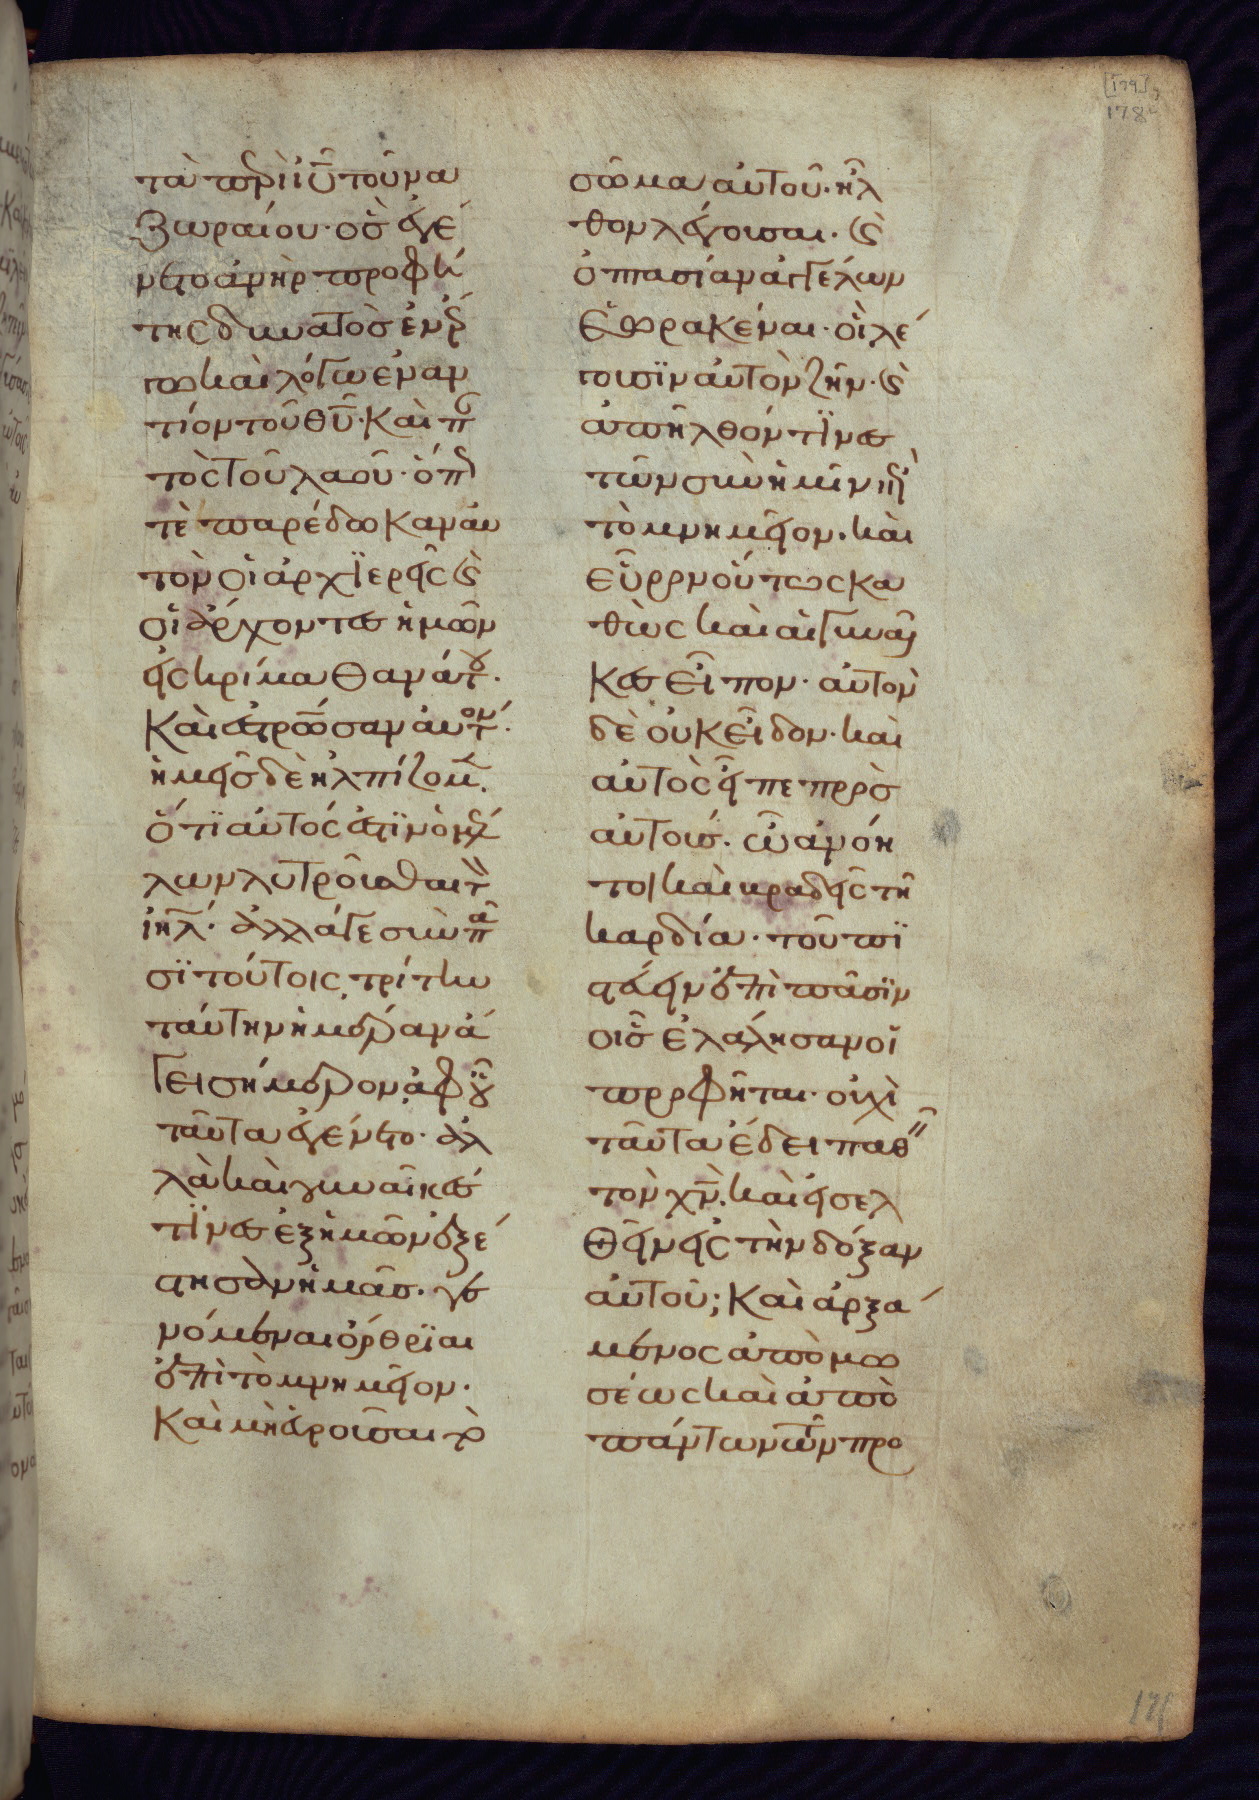 τὰ περὶ ἰῦ τοῦ να
ζωραίου· ὃς ἐγέ
νετο ἀνὴρ προφή
της δυνατὸς ἐν ἔρ
γω καὶ λόγω ἐναν
τίον τοῦ θῦ· καὶ π
τὸς τοῦ λαοῦ· ὅπ
τε παρέδωκαν αυ
τὸν οἱ ἀρχϊερεῖς ϗ
οἱ ἄρχοντες ἡμῶν
εἰς κρίμα θανάτου·
καὶ ἐστρωσαν αυτόν·
ἡμεῖς δὲ ἠλπίζομ.
ὅτι αὐτός ἐστϊν ὁ μέλ
λων λυτροῦσθαι τ
ἰηλ· ἀλλά γε σὺν πᾶ
σϊ τούτοις, τρίτην
ταύτην ἡμέραν ἀ
γει σήμερον, ἀφ οὗ
ταῦτα ἐγένετο· ἀλ
λὰ καὶ γυναῖκές
τϊνες ἐξ ἡμῶν ἐξέ
στησαν ἡμᾶς· γε
νόμεναι ὄρθρϊαι
ἐπὶ τὸ μνημεῖον·
καὶ μὴ εὑροῦσαι τὸ
σῶμα αὐτοῦ· ἦλ
θον λέγουσαι· ϗ
ὀπτασίαν ἀγγέλων
ἑωρακέναι· οἳ λέ
γουσϊν αὐτὸν ζῆν· ϗ
ἀπῆλθόν τϊνες
τῶν σὺν ἡμῖν ἐπὶ
τὸ μνημεῖον· καὶ
εὗρον οὕτως κα
θὼς καὶ αἱ γυναῖ
κες εἶπον· αὐτὸν
δὲ οὐκ εἶδον· καὶ
αὐτὸς εἶπε πρὸς
αὐτούς· ὦ ἀνόη
τοι καὶ βραδεῖς τῆ
καρδία· τοῦ πϊ
στεύειν ἐπὶ πᾶσϊν
οἷς ἐλάλησαν οἱ
προφῆται· οὐχὶ
ταῦτα ἔδει παθ
τὸν χν· καὶ εἰσελ
θεῖν εἰς τὴν δόξαν
αὐτοῦ; καὶ ἀρξά
μενος ἀπὸ μω
σέως καὶ ἀπὸ
πάντων τῶν προ
[179]
178